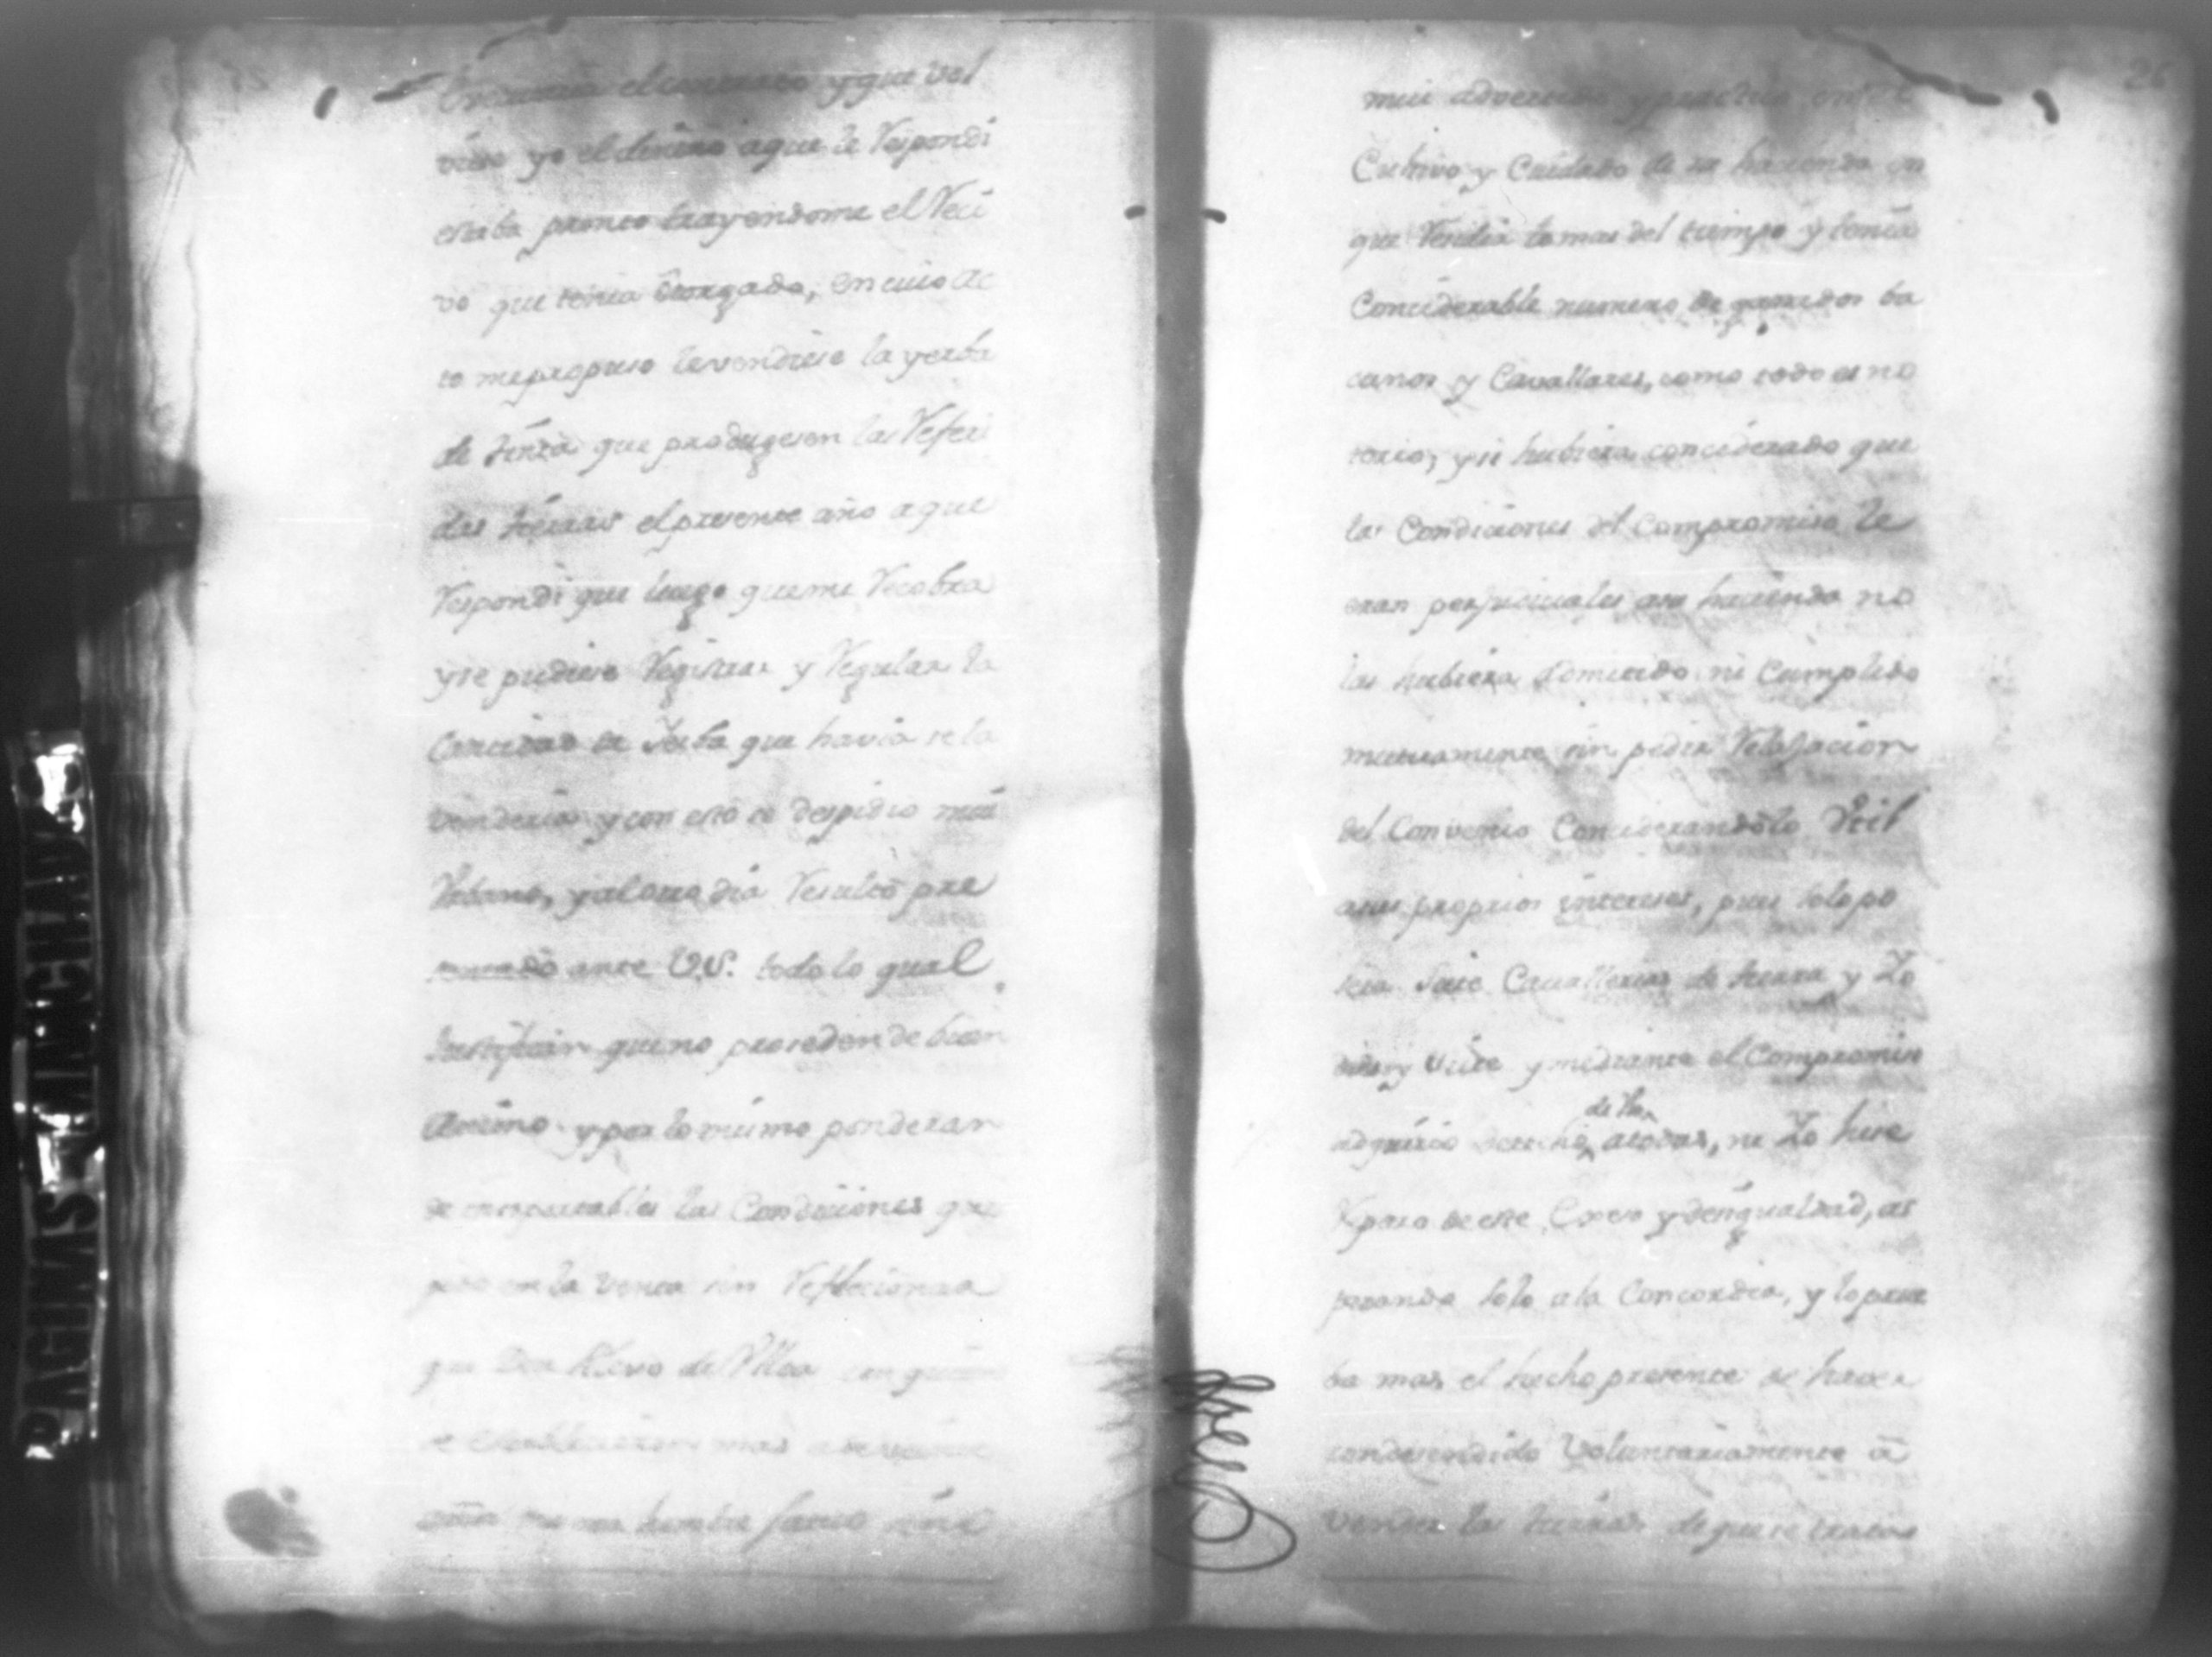 el contrato y que vol
viese yo el dinero aque le Respondi
estaba pronto trayendome el Reci
vo que tenia Otorgado, en cuio ac
to me propuso le vendiese la yerba
de tinta que produgesen las Referi
das tierras el presente año a que
Respondi que luego que me Recobra
y se pudiese Registrar y Regular la
Cantidad de Yerba que havia se la
venderia y con esto se despidio mui
Vrbano, y al otro dia Resultó pre
sentado ante V.S. todo lo qual
Justifican que no proceden de buen
Animo y por lo mismo ponderan
de insoportables las Condiciones que
puse en la Venta sin Reflecionar
que Don de Vlloa con quien
se mas
hombre
mui advertido y practico en el
Cultivo y Cuidado de su hacienda en
que Residia lo mas del tiempo y tenia
Conciderable numero de ganados ba
cunos y Cavallares, como todo es no
torio, y si hubiera conciderado que
las Condiciones del Compromiso le
eran perjuiciales a su hacienda no
las hubiera admitido ni Cumplido
mutuamente sin pedir Relajacion
del Convenio Conciderandolo Vtil
a sus proprios intereses, pues solo po
seia Siete Cavallerias de tierra y Yo
veinte y mediante el Compromiso
adquirio derecho de ha a todas, ni Yo hise
Reparo de este Exeso y desigualdad, as
pirando solo a la Concordia, y lo prue
ba mas el hecho presente de haver
condesendido Voluntariamente á
Vender las tierras de que se trata
PAGINAS MANCHADAS